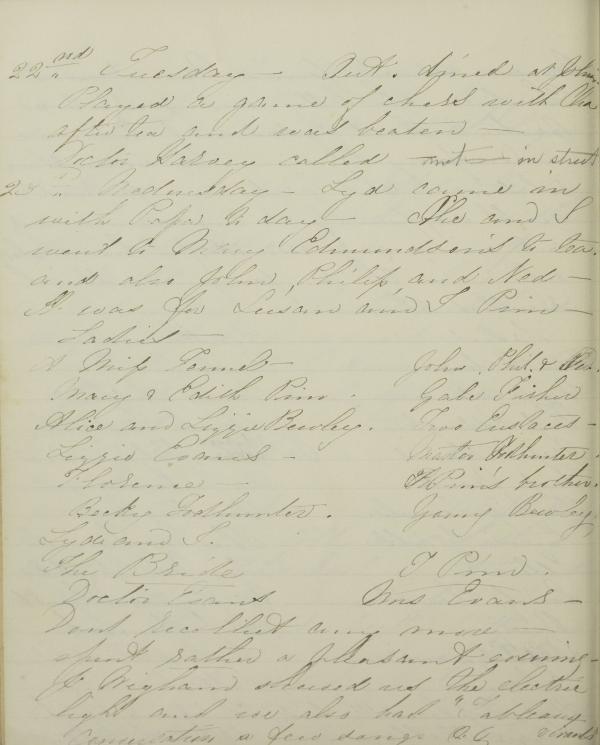 22nd Tuesday — Aut. dined at John's
Played a game of chess with Cha
after tea and was beaten —
Doctor Harvey called in street
23 " Wednesday — Lyd came in
with Papa to day — She and I
went to Mary Edmundson's to tea.
and also John, Philip, and Ned —
It was for Susan and T Pim —
Ladies —
A Miss
Mary & Edith Pim. Gabe Fisher
Alice and Lizzie Bewley. Two Eustaces —
Lizzie Evans — Master Todhunter.
Florence — T Pim's brother.
Becky Todhunter. Young Bewley,
Lyd and I.
The Bride T Pim.
Doctor Evans Mrs Evans —
Dont recollect any more —
spent rather a pleasant evening —
J. Wigham showed us the electric
light and we also had "Tableaux
Conversation a few songs &c.